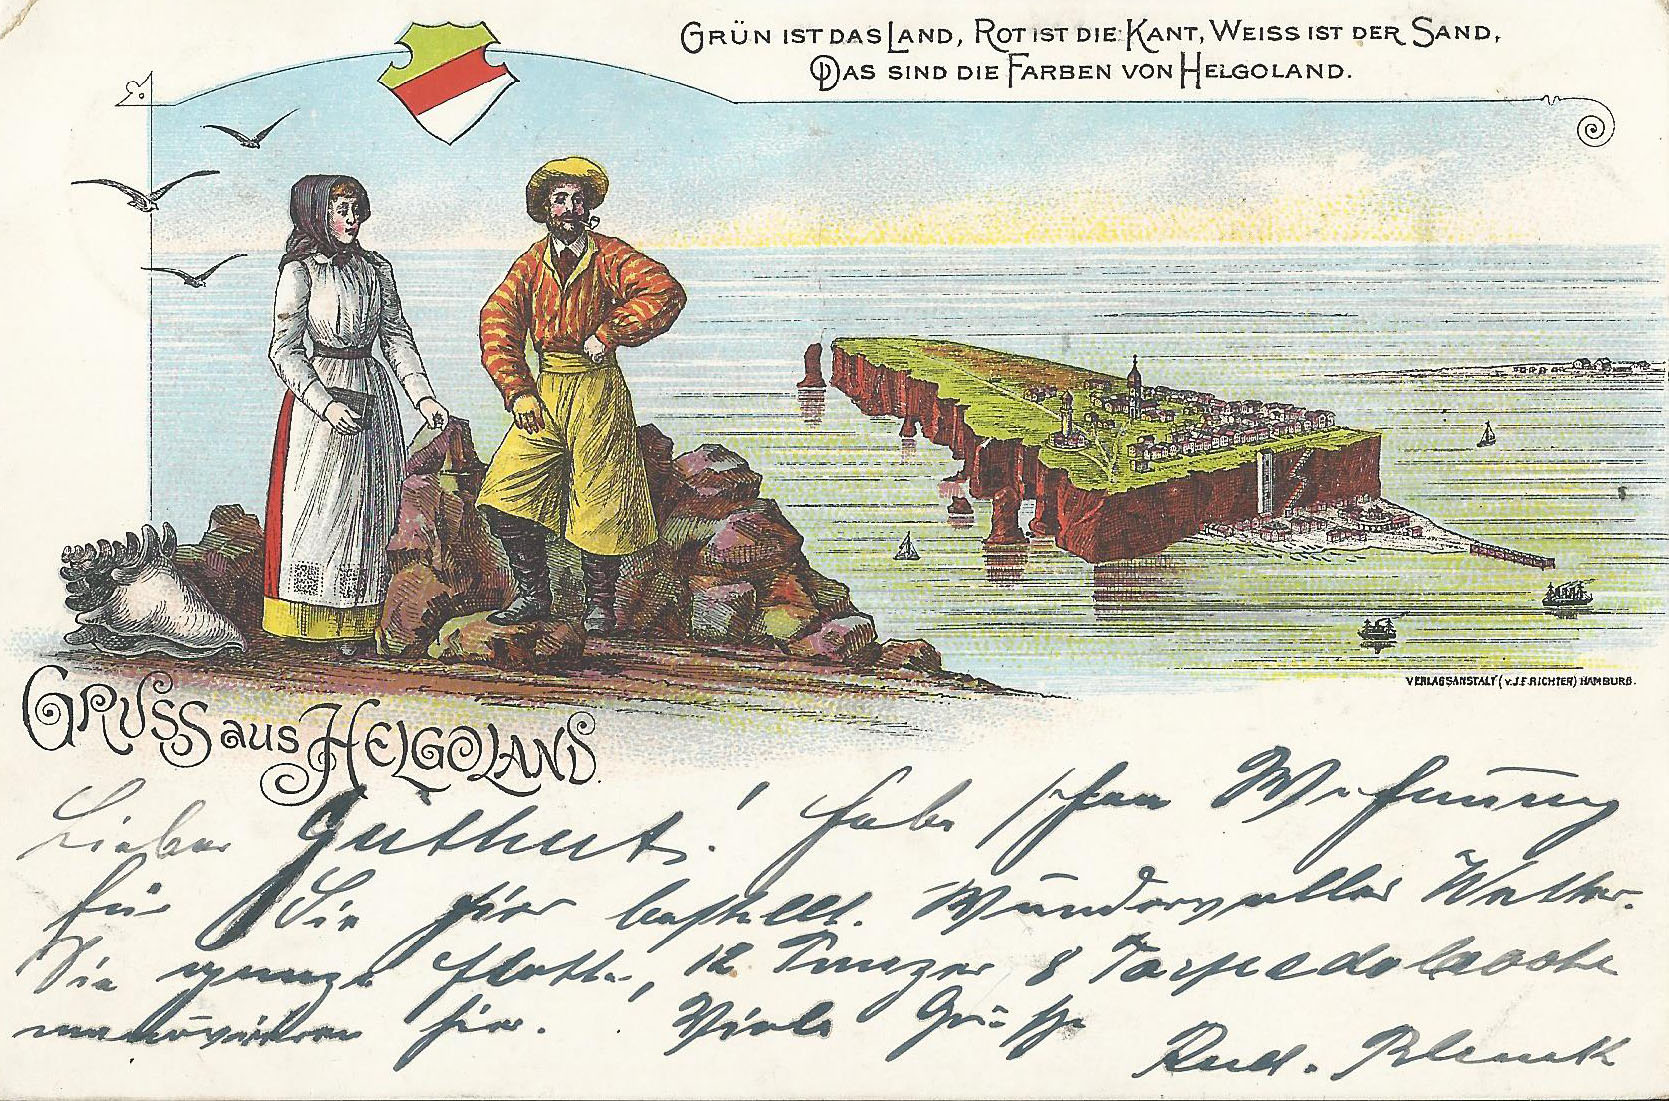 GRÜN IST DAS LAND, ROT IST DIE KANT, WEISS IST DER SAND,
DAS SIND DIE FARBEN VON HELGOLAND.
VERLAGSANSTALT (v. J.F. RICHTER) HAMBURG.
GRUSS aus HELGOLAND.
Lieber Guthut! habe schon Wohnung
für Sie hier bestellt. Wundervolles Wetter.
Die ganze Flotte, 12 Panzer 8 Torpedoboote
manövrieren hier. Viele Grüße
Rud.